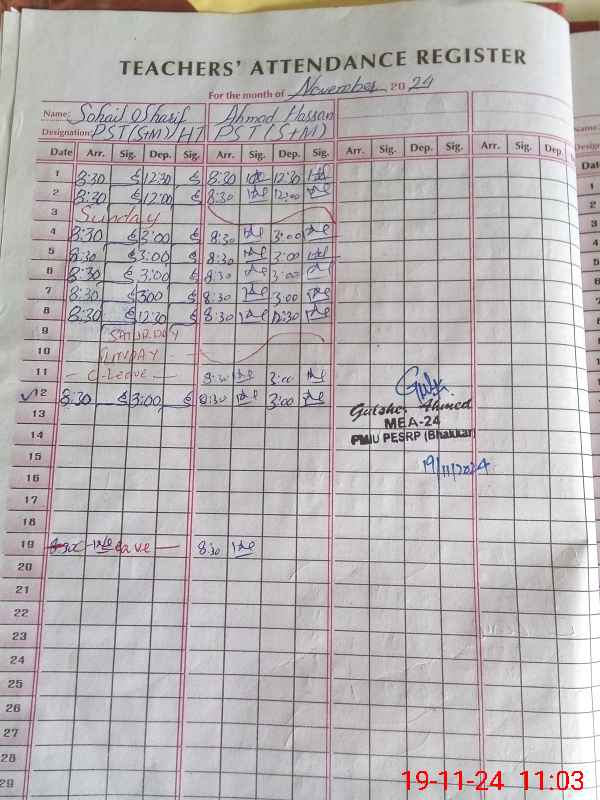 TEACHERS' ATTENDANCE REGISTER
For the month of November 2024
Name: Sohail Sharif Ahmad Hassan
Designation: PST(S+M)/HT PST(S+M)
Date Arr. Sig. Dep. Sig. Arr. Sig. Dep. Sig. Arr. Sig. Dep. Sig. Arr. Sig. Dep.
1 8:30 12:30 8:30 12:30
2 8:30 12:00 8:30 12:00
3 Sunday
4 8:30 3:00 8:30 3:00
5 8:30 3:00 8:30 3:00
6 8:30 3:00 8:30 3:00
7 8:30 3:00 8:30 3:00
8 8:30 12:30 8:30 12:30
9 SATURDAY
10 SUNDAY
11 - C-Leave - 8:30 3:00
12 8:30 3:00 8:30 3:00
Gulsher Ahmed
13
MEA-24
14
PMIU PESRP (Bhakkar)
15
19/11/2024
16
17
18
19 8:30
20
21
22
23
24
25
26
27
28
29
19-11-24 11:03